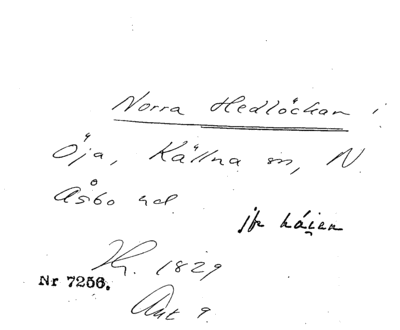 Norra Hedlöckan i
Öja, Källna sn, N.
Åsbo hd.
jfr
Hr. 1829
Nr 7256.
Akt 9